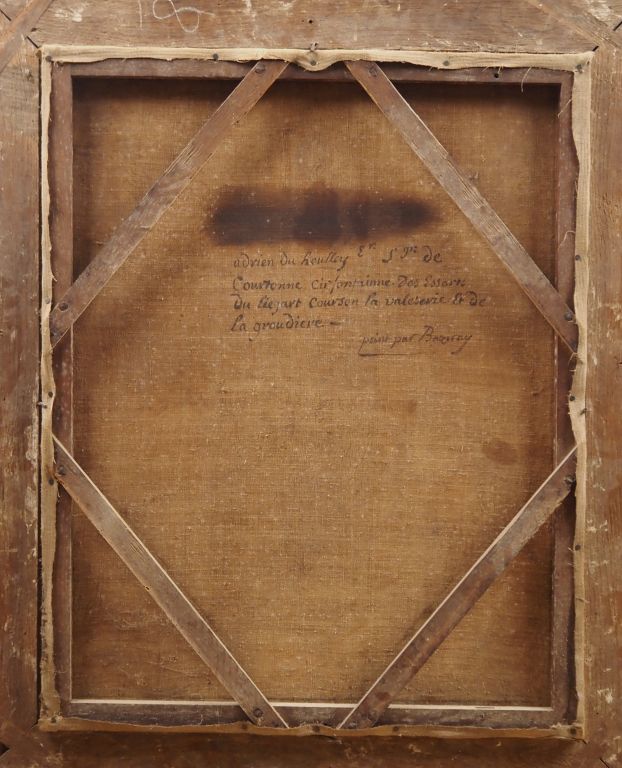 18
adrien du houlley Er. Sgr. de
Courtonne Cirfontainne Des Essars
Du liegart Courson la valeterie Et de
la groudiere —
peint par